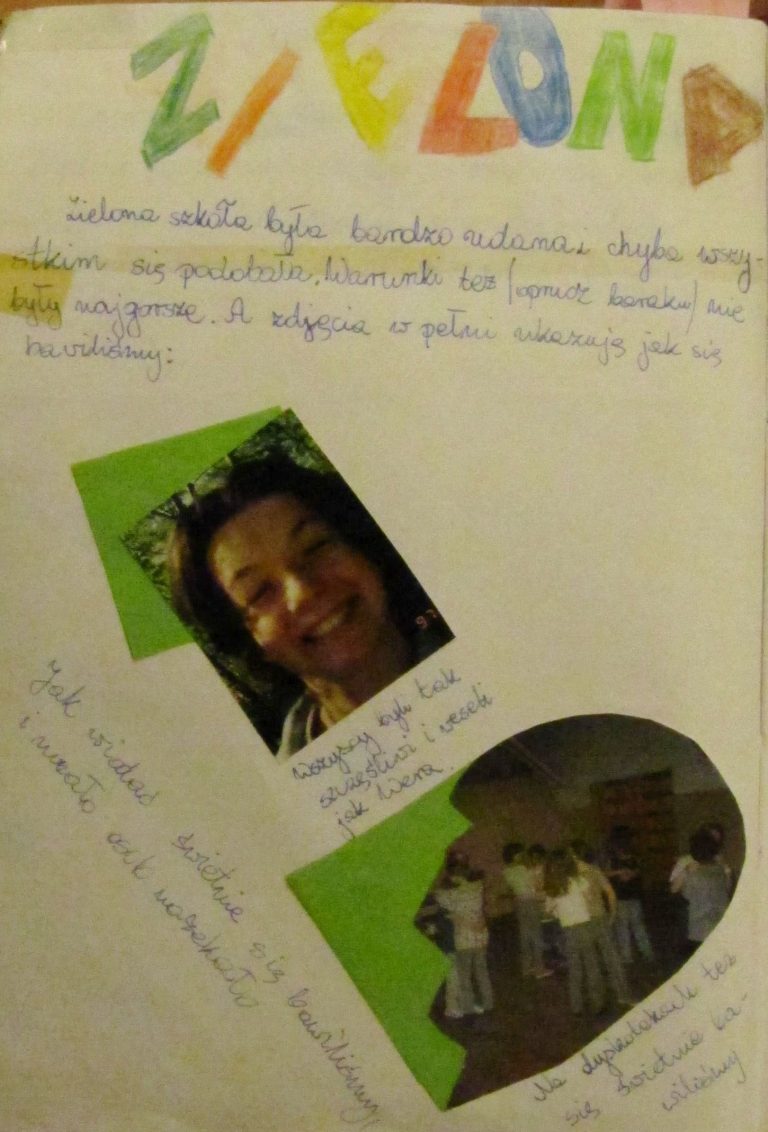 ZIELONA
Zielona szkoła była bardzo udana i chyba wszy-
stkim się podobała. Warunki też (oprucz baraku) nie
były najgorsze. A zdjęcia w pełni ukazują jak się
bawiliśmy:
97
Wszyscy byli tak
szczęśliwi i weseli
jak Wera.
Jak widać świetnie się bawiliśmy,
i mało osób narzekało
Na dyskotekach też
się świetnie ba-
wiliśmy